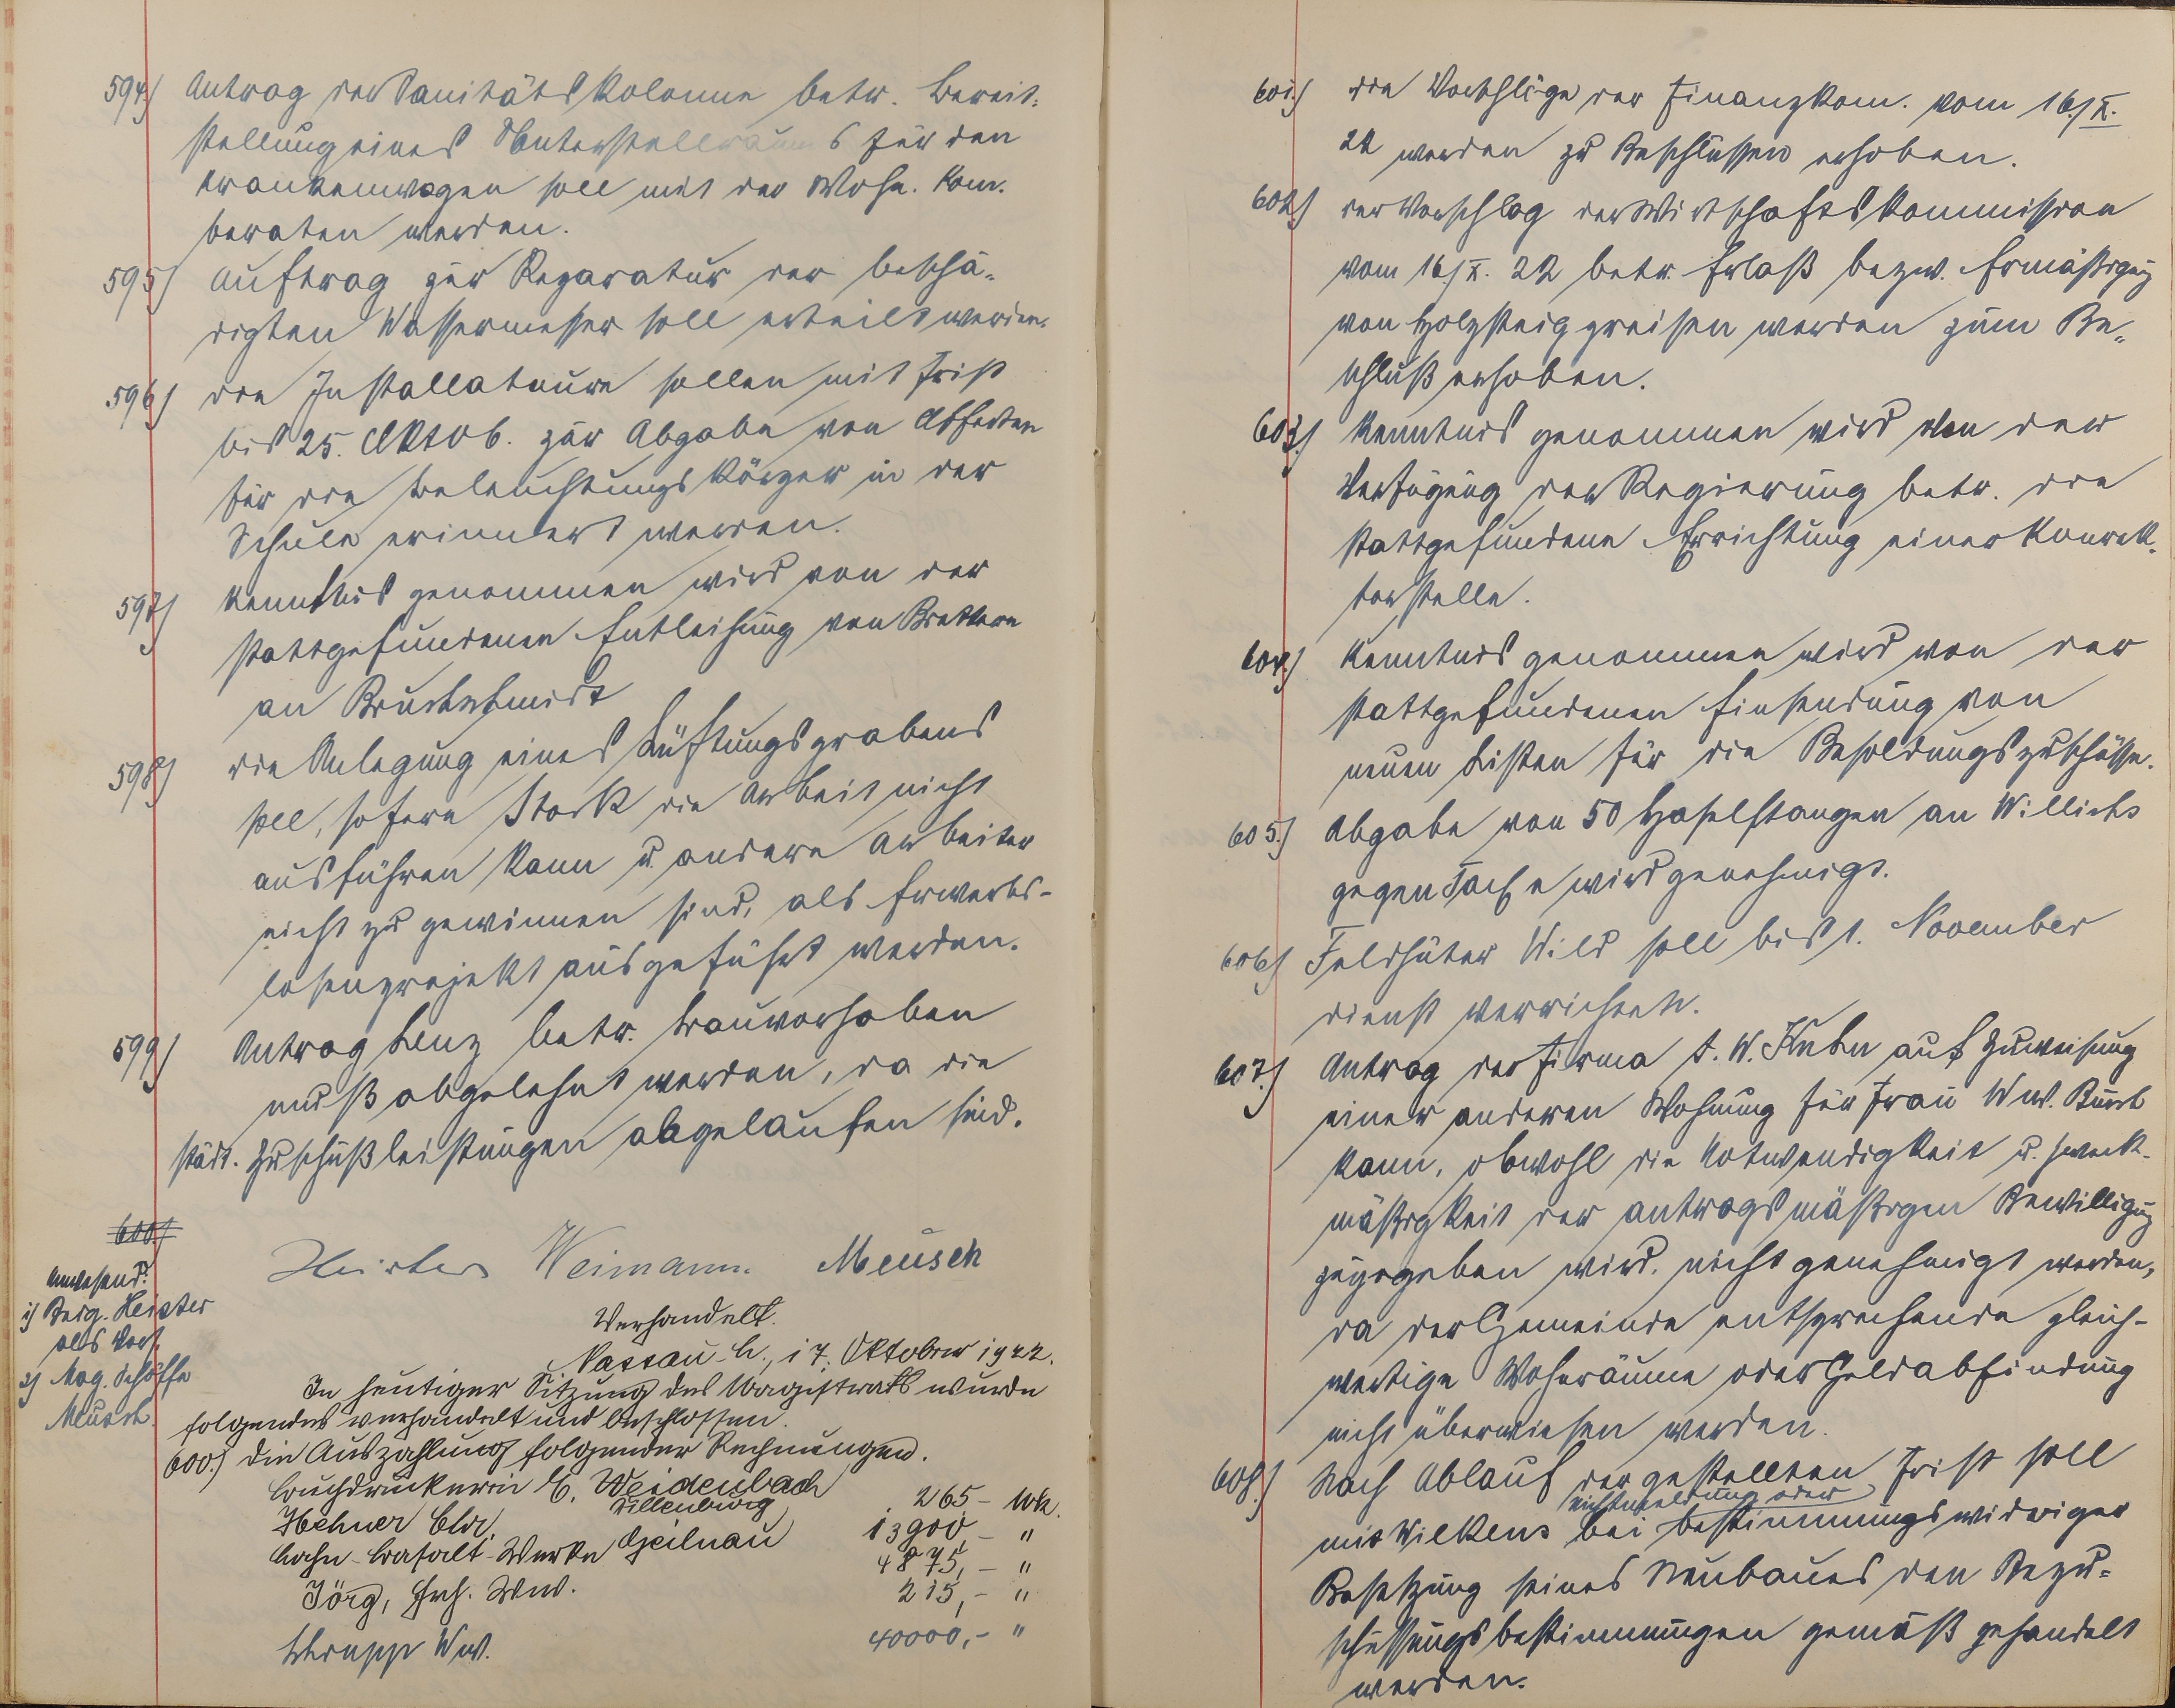 594.) Antrag der Sanitätskolonne betr. Bereit-
stellung eines Unterstellraums für den
Krankenwagen soll mit der Wohn. Kom.
beraten werden.
595) Auftrag zur Reparatur der beschä-
digten Wassermesser soll erteilt werden.
596) Die Installateure sollen mit Frist
bis 25. Oktob. zur Abgabe von Offerten
für die Beleuchtungskörper in der
Schule erinnert werden.
597) Kenntnis genommen wird von der
stattgefundenen Entleihung von Brettern
an
598) Die Anlegung eines Lüftungsgrabens
soll, sofern Stork die Arbeit nicht
ausführen kann u. andere Arbeiter
nicht zu gewinnen sind, als Erwerbs-
losenprojekt ausgeführt werden.
599) Antrag Lenz betr. Bauvorhaben
muß abgelehnt werden, da die
städt. Zuschußleistungen abgelaufen sind.
600.)
Heister Weimann. Meusch
Anwesend:
1) Berg. Heister
als Vors.
2) Mag. Schöffe
Meusch.
Verhandelt.
Nassau L., 17. Oktober 1922.
In heutiger Sitzung des Magistrats wurde
folgendes verhandelt und beschlossen.
600.) Die Auszahlung folgender Rechnungen.
Buchdruckerei E. Weidenbach
Dillenburg 265 - Mk.
Hehner Chr. 13900 - "
Lahn-Basalt-Werke Geilnau 4875,- "
Jörg, Hch. Ww. 215,- "
Schrupp Ww. 40000,- "
601.) Die Vorschläge der Finanzkom. vom 16./X.
22 werden zu Beschlüssen erhoben.
602) Der Vorschlag der Wirtschaftskommission
vom 16./X. 22 betr. Erlaß bezw. Ermäßigung
von Holzsteigpreisen werden zum Be-
schluß erhoben.
603.) Kenntnis genommen wird von der
Verfügung der Regierung betr. die
stattgefundene Errichtung einer Konrek-
torstelle.
604.) Kenntnis genommen wird von der
stattgefundenen Einsendung von
neuen Listen für die Besoldungszuschüsse.
605.) Abgabe von 50 Haselstangen an Willichs
gegen Taxe wird genehmigt.
606) Feldhüter Wild soll bis 1. November
Dienst verrichten.
607.) Antrag der Firma W. Kuhn auf Zuweisung
einer anderen Wohnung für Frau Ww.
kann, obwohl die Notwendigkeit u. Zweck-
mäßigkeit der antragsmäßigen Bewilligung
zugegeben wird, nicht genehmigt werden,
da der Gemeinde entsprechende gleich-
wertige Wohnräume oder Geldabfindung
nicht überwiesen werden.
608.) Nach Ablauf der gestellten Frist soll
nichtmeldung oder
mit Wilkens bei bestimmungswidriger
Besetzung seines Neubaues den Bezu-
schussungsbestimmungen gemäß gehandelt
werden.